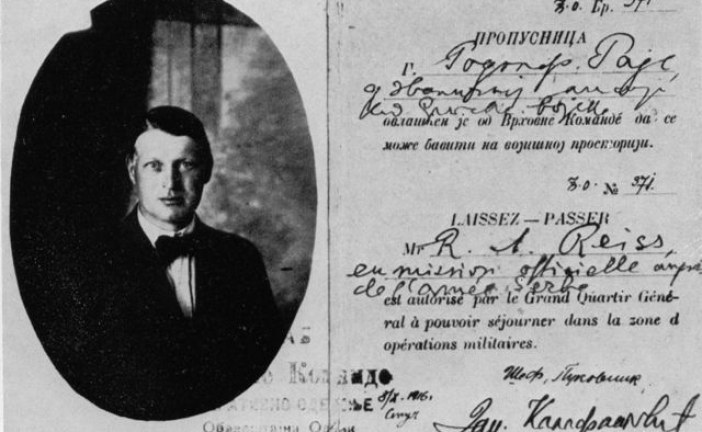 З.О. Бр. 371
ПРОПУСНИЦА
Г. Родолф. Рајс,
у званичној
код Српске војске
овлашћен је од Врховне Команде да се
може бавити на војишној просторији.
З.О. № 371.
LAISSEZ—PASSER
Mr R. A. Reiss,
en mission officielle auprès
de l'armée Serbe
est autorisé par le Grand Quartir Géné-
ral à pouvoir séjourner dans la zone d
opérations militaires.
Шеф, Пуковник
Команде
1916